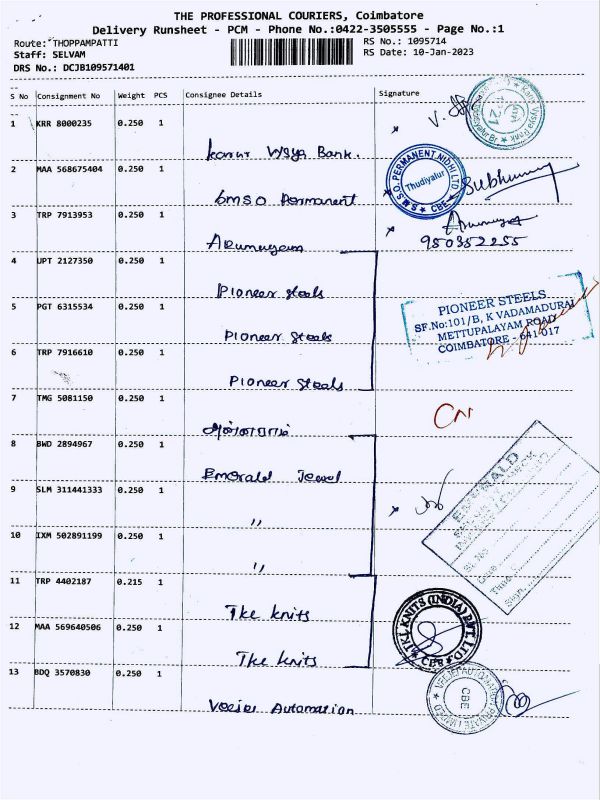 THE PROFESSIONAL COURIERS, Coimbatore
Delivery Runsheet - PCM - Phone No.:0422-3505555 - Page No.:1
Route: THOPPAMPATTI
RS No.: 1095714
Staff: SELVAM
RS Date: 10-Jan-2023
DRS No.: DCJB109571401
S No Consignment No Weight PCS Consignee Details Signature
1 KRR 8000235 0.250 1
Karur Vysya Bank.
2 MAA 568675404 0.250 1
S.M.S.O. PERMANENT NIDHI LTD
Thudiyalur
CBE
Permanent
3 TRP 7913953 0.250 1
Arumugam
950352255
4 UPT 2127350 0.250 1
Pioneer Steels
5 PGT 6315534 0.250 1
Pioneer Steels
PIONEER STEELS
SF.No:101/B, K VADAMADURAI
METTUPALAYAM ROAD
COIMBATORE - 641 017
6 TRP 7916610 0.250 1
Pioneer Steels
7 TMG 5081150 0.250 1
CN
8 BWD 2894967 0.250 1
Emerald Jewel
EMERALD
9 SLM 311441333 0.250 1
"
10 IXM 502891199 0.250 1
"
11 TRP 4402187 0.215 1
Tke knits
TKL KNITS (INDIA) PVT. LTD
CBE
12 MAA 569640506 0.250 1
Tke knits
13 BDQ 3570830 0.250 1
VEEJEI AUTOMATION PRIVATE LIMITED
CBE
Veejei Automation